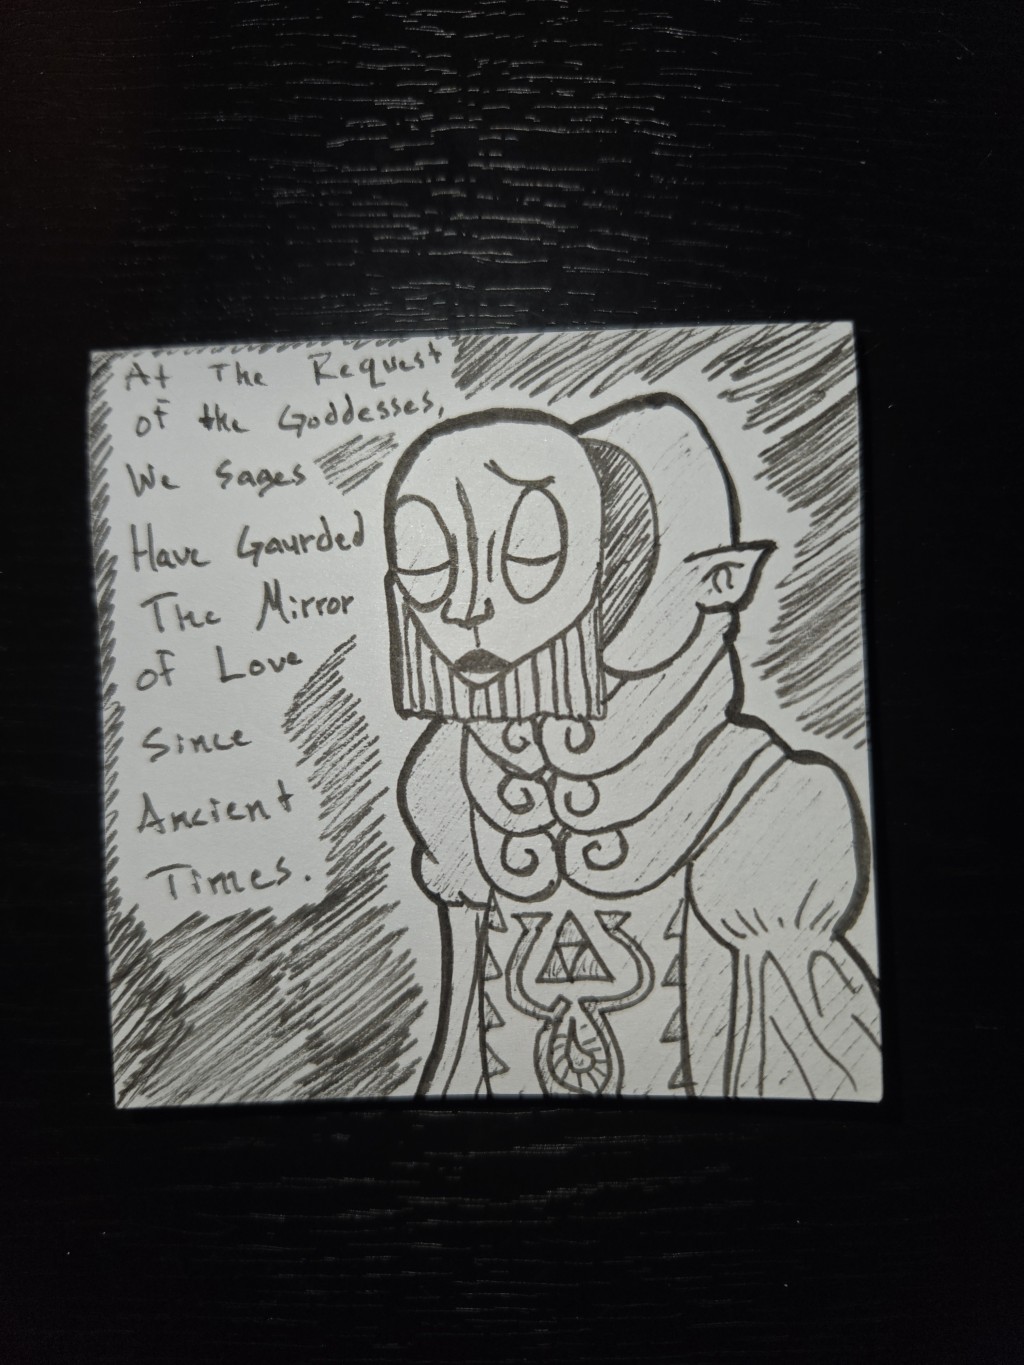 At The Request
of the Goddesses,
We Sages
Have Gaurded
The Mirror
of Love
Since
Ancient
Times.